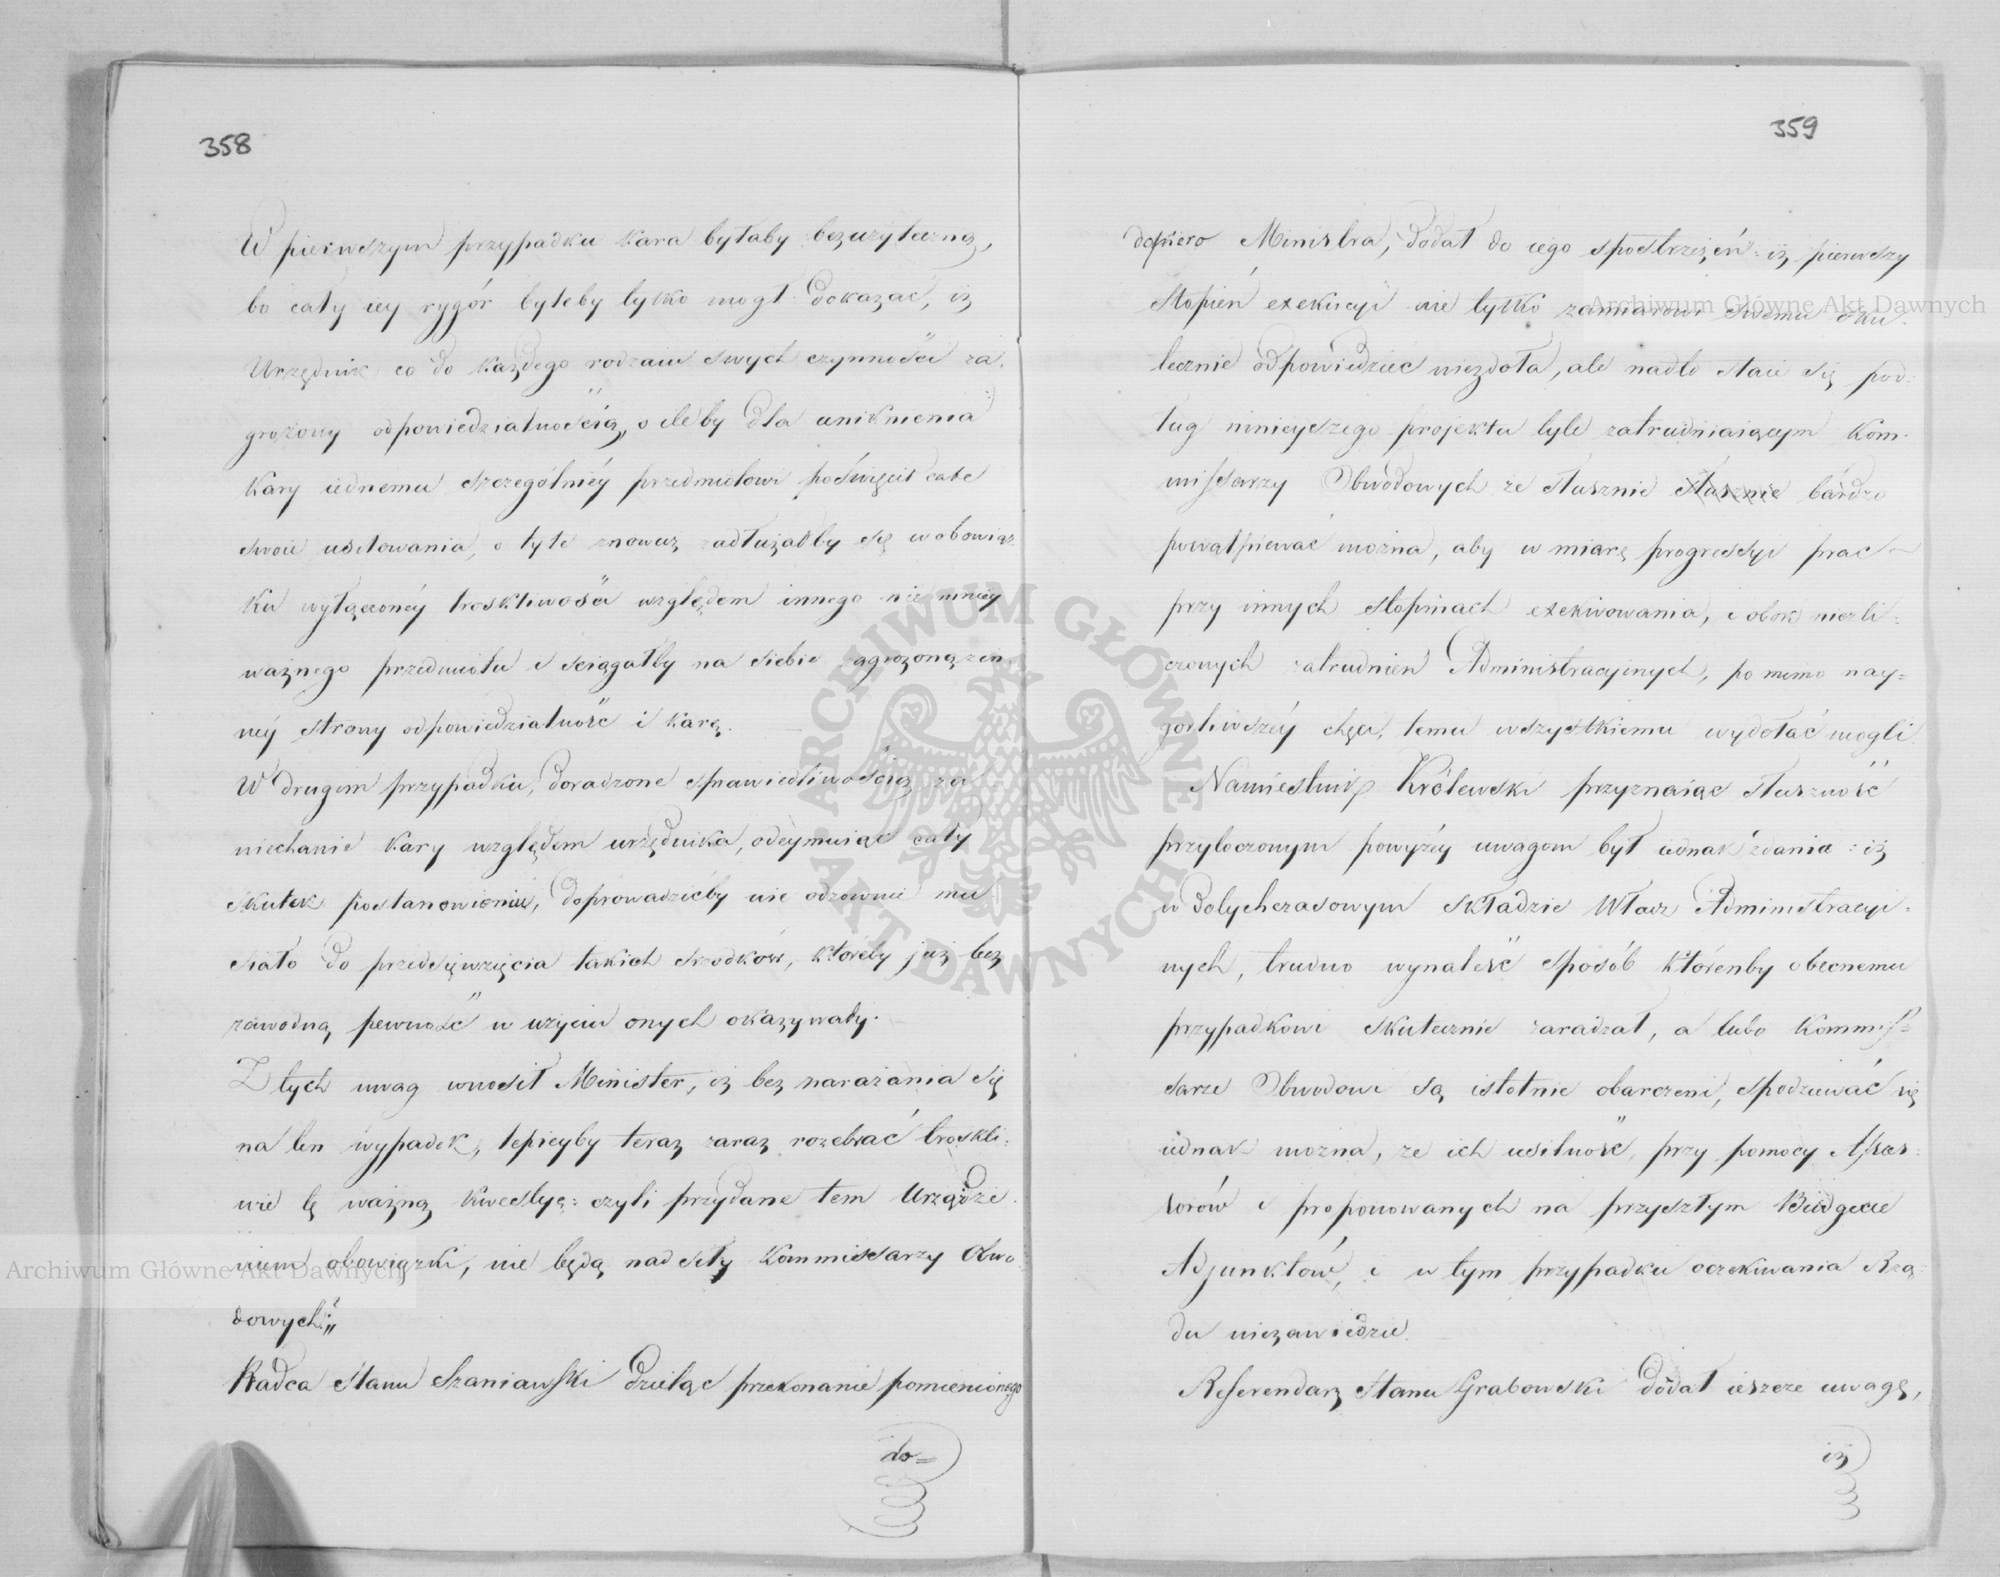 358
W pierwszym przypadku kara byłaby bezużyteczną,
bo cały iey rygór byłeby tylko mógł dokazać, iż
Urzędnik co do każdego rodzaiu swych czynności za-
grożony odpowiedzialnością, o ileby dla uniknienia
kary iednemu szczególniéy przedmiotowi poświęcił całe
swoie usiłowania, o tyle znowuż zadłużałby się w obowiąz
ku wyłączonéy troskliwości względem innego nie mniéy
ważnego przedmiotu i ściągałby na siebie zagrożoną zin
néy strony odpowiedzialność i karę.
W drugim przypadku, doradzone sprawiedliwością za
niechanie kary względem urzędnika, odéymuiąc cały
skutek postanowieniu, doprowadzićby nie odzownie mu
siało do przedsięwzięcia takich srzodków, któréby już bez
zawodną pewność w użyciu onych okazywały.
Z tych uwag wnosił Minister, iż bez narażania się
na ten wypadek, lepieyby teraz zaraz rozebrać troskli-
wie tę ważną kwestyę: czyli przydane tem Urządze-
niem obowiązki, nie będą nad siły Kommissarzy Obwo
dowych?"
Radca Stanu Szaniawski dzieląc przekonanie pomienionego
do=
359
dopiero Ministra, dodał do iego spostrzeżeń: iż pierwszy
stopień exekucyi nie tylko zamiarowi swemu sku-
tecznie odpowiedzieć niezdoła, ale nadto staie się pod-
ług ninieyszego projektu tyle zatrudniaiącym Kom-
missarzy Obwodowych że słusznie słusznie bardzo
powątpiewać można, aby w miarę progressyi prac
przy innych stopniach exekwowania, i obok niezli-
czonych zatrudnień Administracyinych, po mimo nay=
gorliwszéy chęci, temu wszystkiemu wydołać mogli.
Namiestnik Królewski przyznaiąc słuszność
przytoczonym powyżéy uwagom był iednak zdania: iż
w dotychczasowym składzie Władz Administracyi-
nych, trudno wynaleść sposób któremby obecnemu
przypadkowi skutecznie zaradzał, a lubo Kommis=
sarze Obwodowi są istotnie obarczeni, spodziewać się
iednak można, że ich usilność, przy pomocy Asses-
sorów i proponowanych na przyszłym Budgecie
Adjunktów, i w tym przypadku oczekiwania Rzą-
du niezawiedzie.
Referendarz Stanu Grabowski dodał ieszcze uwagę,
iż
Archiwum Główne Akt Dawnych
Archiwum Główne Akt Dawnych
ARCHIWUM GŁÓWNE
AKT DAWNYCH